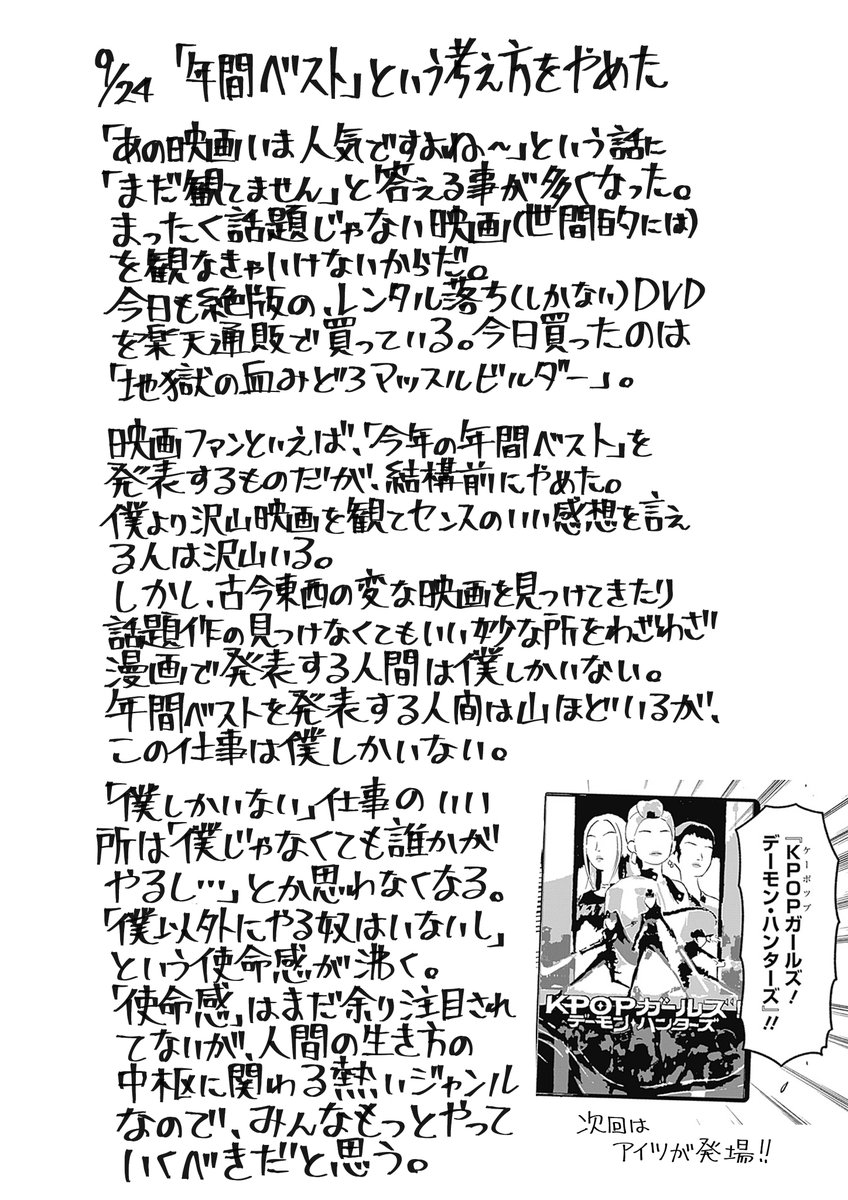 9/24 「年間ベスト」という考え方をやめた
「あの映画いま人気ですよね〜」という話に
「まだ観てません」と答える事が多くなった。
まったく話題じゃない映画(世間的には)
を観なきゃいけないからだ。
今日も絶版の、レンタル落ち(しかない)DVD
を楽天通販で買っている。今日買ったのは
「地獄の血みどろマッスルビルダー」。
映画ファンといえば、「今年の年間ベスト」を
発表するものだが、結構前にやめた。
僕より沢山映画を観てセンスのいい感想を言え
る人は沢山いる。
しかし、古今東西の変な映画を見つけてきたり
話題作の見つけなくてもいい妙な所をわざわざ
漫画で発表する人間は僕しかいない。
年間ベストを発表する人間は山ほどいるが、
この仕事は僕しかいない。
「僕しかいない」仕事のいい
所は「僕じゃなくても誰かが
やるし…」とか思わなくなる。
「僕以外にやる奴はいないし」
という使命感が沸く。
「使命感」はまだ余り注目され
てないが、人間の生き方の
中枢に関わる熱いジャンル
なので、みんなもっとやって
いくべきだと思う。
『KPOPガールズ!
ケーポップ
デーモン・ハンターズ』!!
KPOPガールズ!
デーモン・ハンターズ
次回は
アイツが発場!!